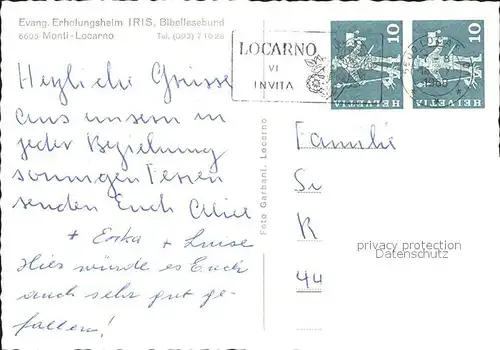 Evang. Erholungsheim IRIS, Bibellesebund
6605 Monti-Locarno Tel. (093) 7 10 28
LOCARNO
VI
INVITA
10
HELVETIA
10
HELVETIA
Herzliche Grüsse
aus unserm in
jeder Beziehung
sonnigen Tessin
senden Euch Alice
+ Erika + Luise
Hier würde es Euch
auch sehr gut ge-
fallen!
Foto Garbani, Locarno
Familie
Su
R
44
privacy protection
Datenschutz